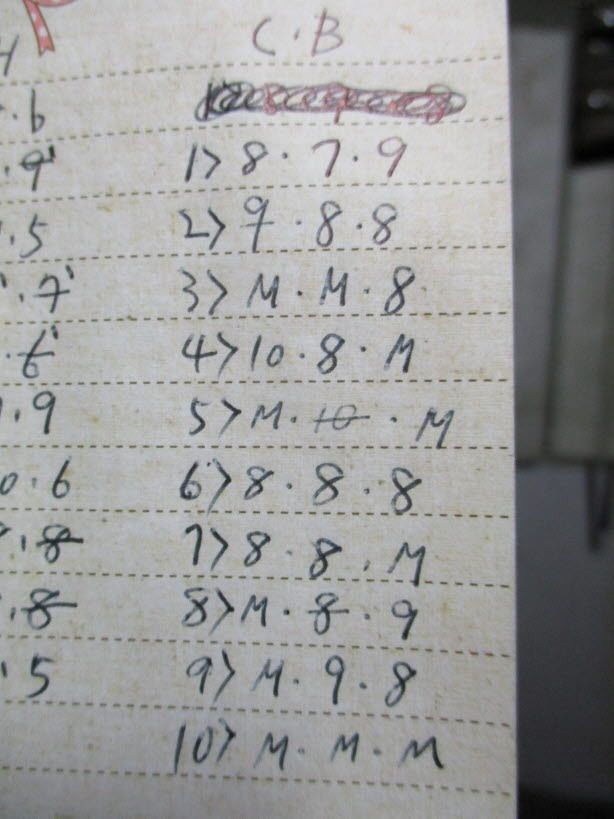 C.B
.6
1> 8.7.9
.9'
2> 9.8.8
.5
3> M.M.8
'.7'
4> 10.8.M
.6'
5> M.10.M
.9
6> 8.8.8
0.6
7> 8.8.M
.8
8> M.8.9
.8
9> M.9.8
.5
10> M.M.M